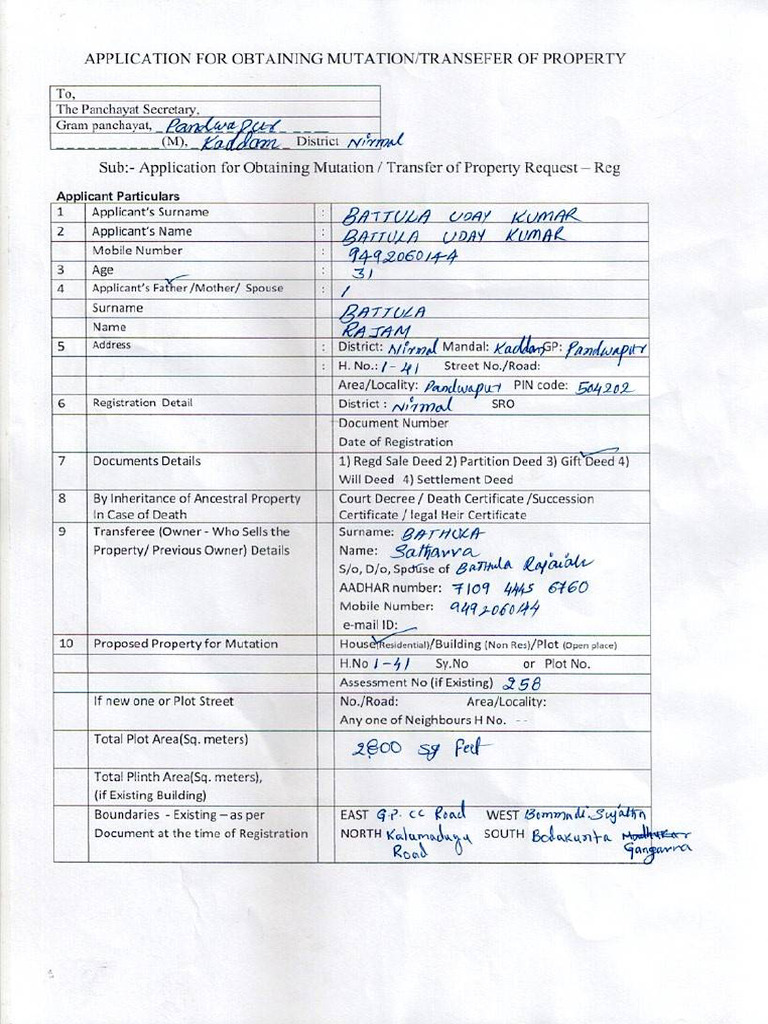 APPLICATION FOR OBTAINING MUTATION/TRANSEFER OF PROPERTY
To,
The Panchayat Secretary,
Gram panchayat, Pandwapur
(M), Kaddam District Nirmal
Sub:- Application for Obtaining Mutation / Transfer of Property Request – Reg
Applicant Particulars
1 Applicant's Surname : BATTULA UDAY KUMAR
2 Applicant's Name : BATTULA UDAY KUMAR
Mobile Number : 9492060144
3 Age : 31
4 Applicant's Father /Mother/ Spouse : /
Surname BATTULA
Name RAJAM
5 Address : District: Nirmal Mandal: Kaddam GP: Pandwapur
: H. No.: 1-41 Street No./Road:
Area/Locality: Pandwapur PIN code: 504202
6 Registration Detail District : Nirmal SRO
Document Number
Date of Registration
7 Documents Details 1) Regd Sale Deed 2) Partition Deed 3) Gift Deed 4)
Will Deed 4) Settlement Deed
8 By Inheritance of Ancestral Property Court Decree / Death Certificate /Succession
In Case of Death Certificate / legal Heir Certificate
9 Transferee (Owner - Who Sells the Surname: BATHULA
Property/ Previous Owner) Details Name: Sathavva
S/o, D/o, Spouse of Bathula Rajaiah
AADHAR number: 7109 4445 6760
Mobile Number: 9492060144
e-mail ID:
10 Proposed Property for Mutation House(Residential)/Building (Non Res)/Plot (Open place)
H.No 1-41 Sy.No or Plot No.
Assessment No (if Existing) 258
If new one or Plot Street No./Road: Area/Locality:
Any one of Neighbours H No. --
Total Plot Area(Sq. meters) 2800 sq feet
Total Plinth Area(Sq. meters),
(if Existing Building)
Boundaries - Existing – as per EAST G.P. CC Road WEST Bommadi Sujatha
Document at the time of Registration NORTH Kalamadugu SOUTH Bodakunta Madhukar
Road Gangavva